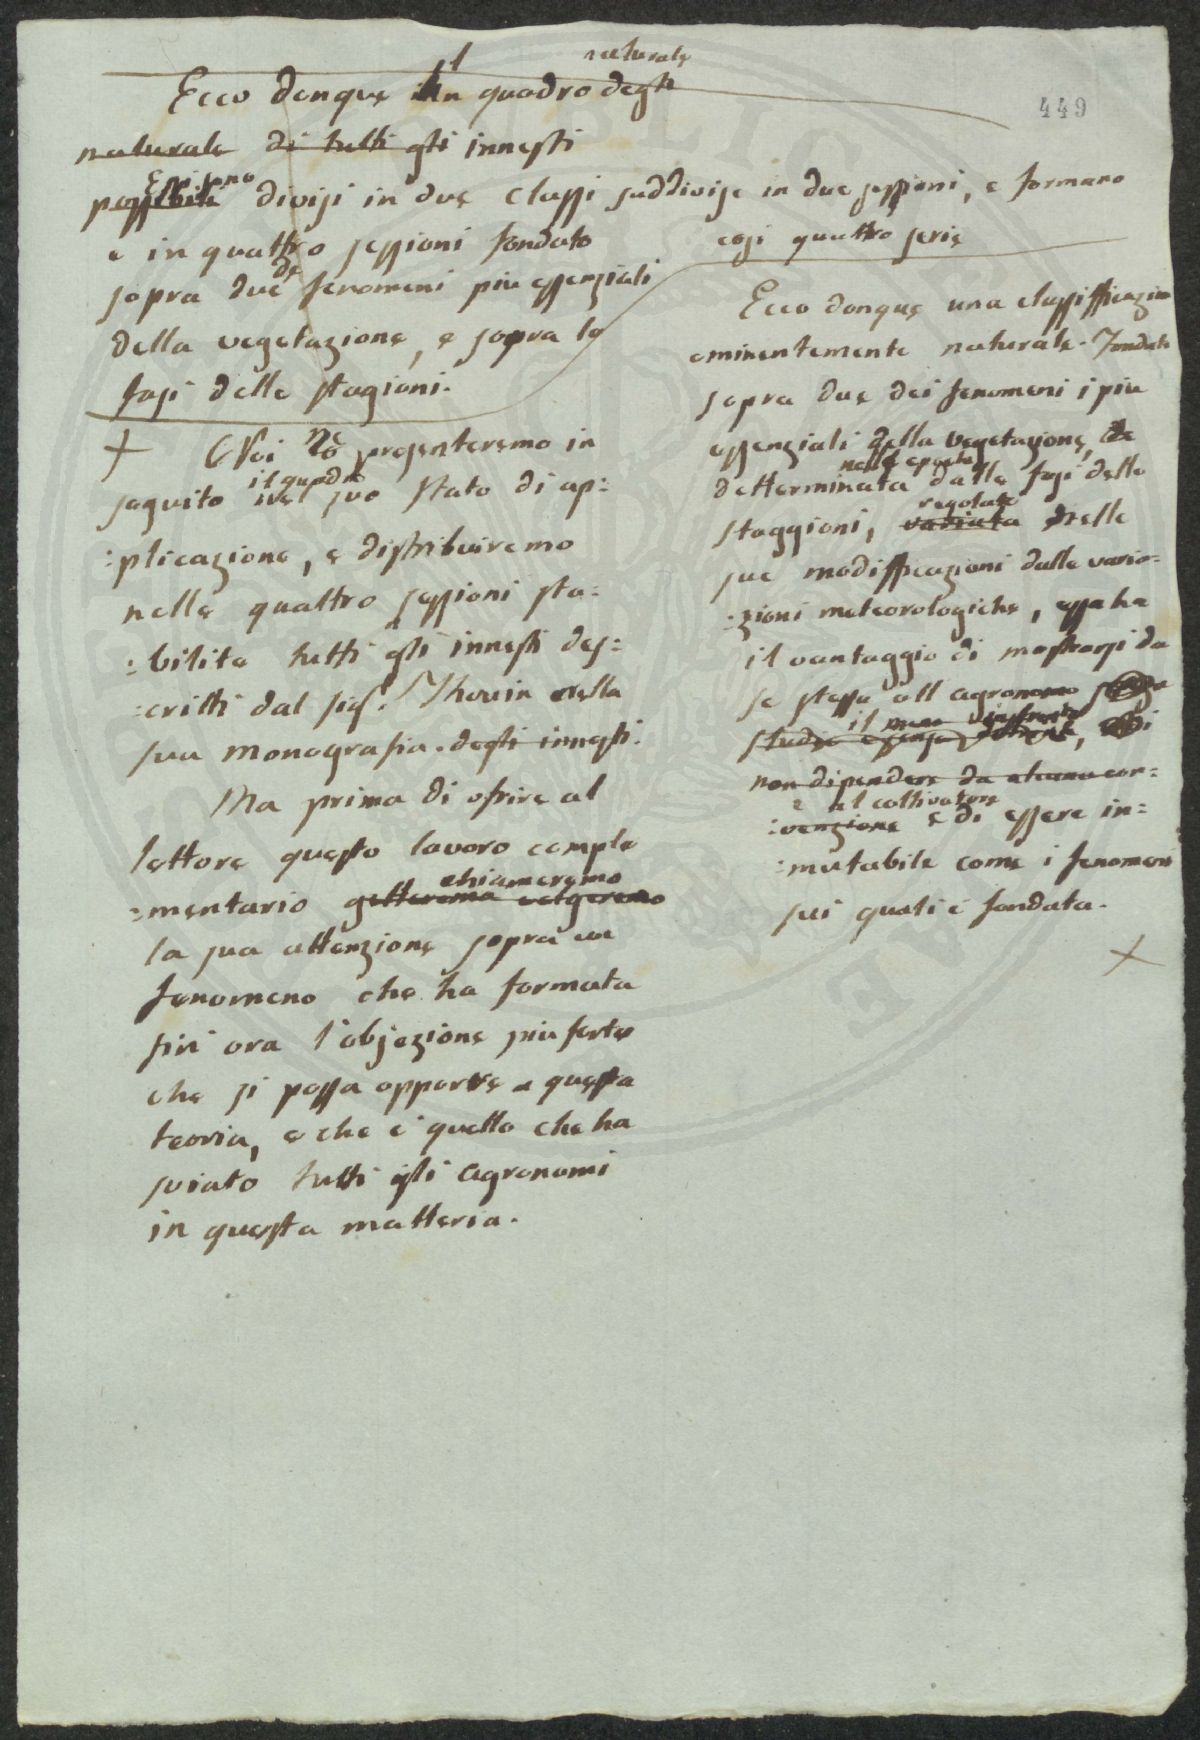 naturale
Ecco donque il quadro degli
449
naturale di tutti gli innesti
Essi sono
possibili divisi in due classi suddivise in due sessioni, e formano
e in quattro sessioni fondato
cosi quattro serie
sopra due de fenomeni piu essenziali
della vegetazione, e sopra le
fasi delle stagioni.
+ Noi ne presenteremo in
il quadro
seguito nel suo stato di ap:
:plicazione, e distribuiremo
nelle quattro sessioni sta:
:bilite tutti gli innesti des:
:critti dal sig.r Thouin nella
sua monografia degli innesti.
Ma prima di ofrire al
lettore questo lavoro comple
chiameremo
:mentario getteremo volgeremo
la sua attenzione sopra un
fenomeno che ha formata
fin ora l'objezione piu forte
che si possa opporre a questa
teoria, e che è quello che ha
sviato tutti gli agronomi
in questa matteria.
Ecco donque una classifficazion
eminentemente naturale. Fondata
sopra due dei fenomeni i piu
essenziali della vegetazione,
nelle epoche
detterminata dalle fasi delle
regolata
staggioni, variata nelle
sue modifficazioni dalle varia:
:zioni meteorologiche, essa ha
il vantaggio di mostrarsi da
se stessa all agronomo
il
studio
non dipendere da alcuna con:
e al coltivatore
:venzione e di essere in:
:mutabile come i fenomeni
sui quali è fondata.
+